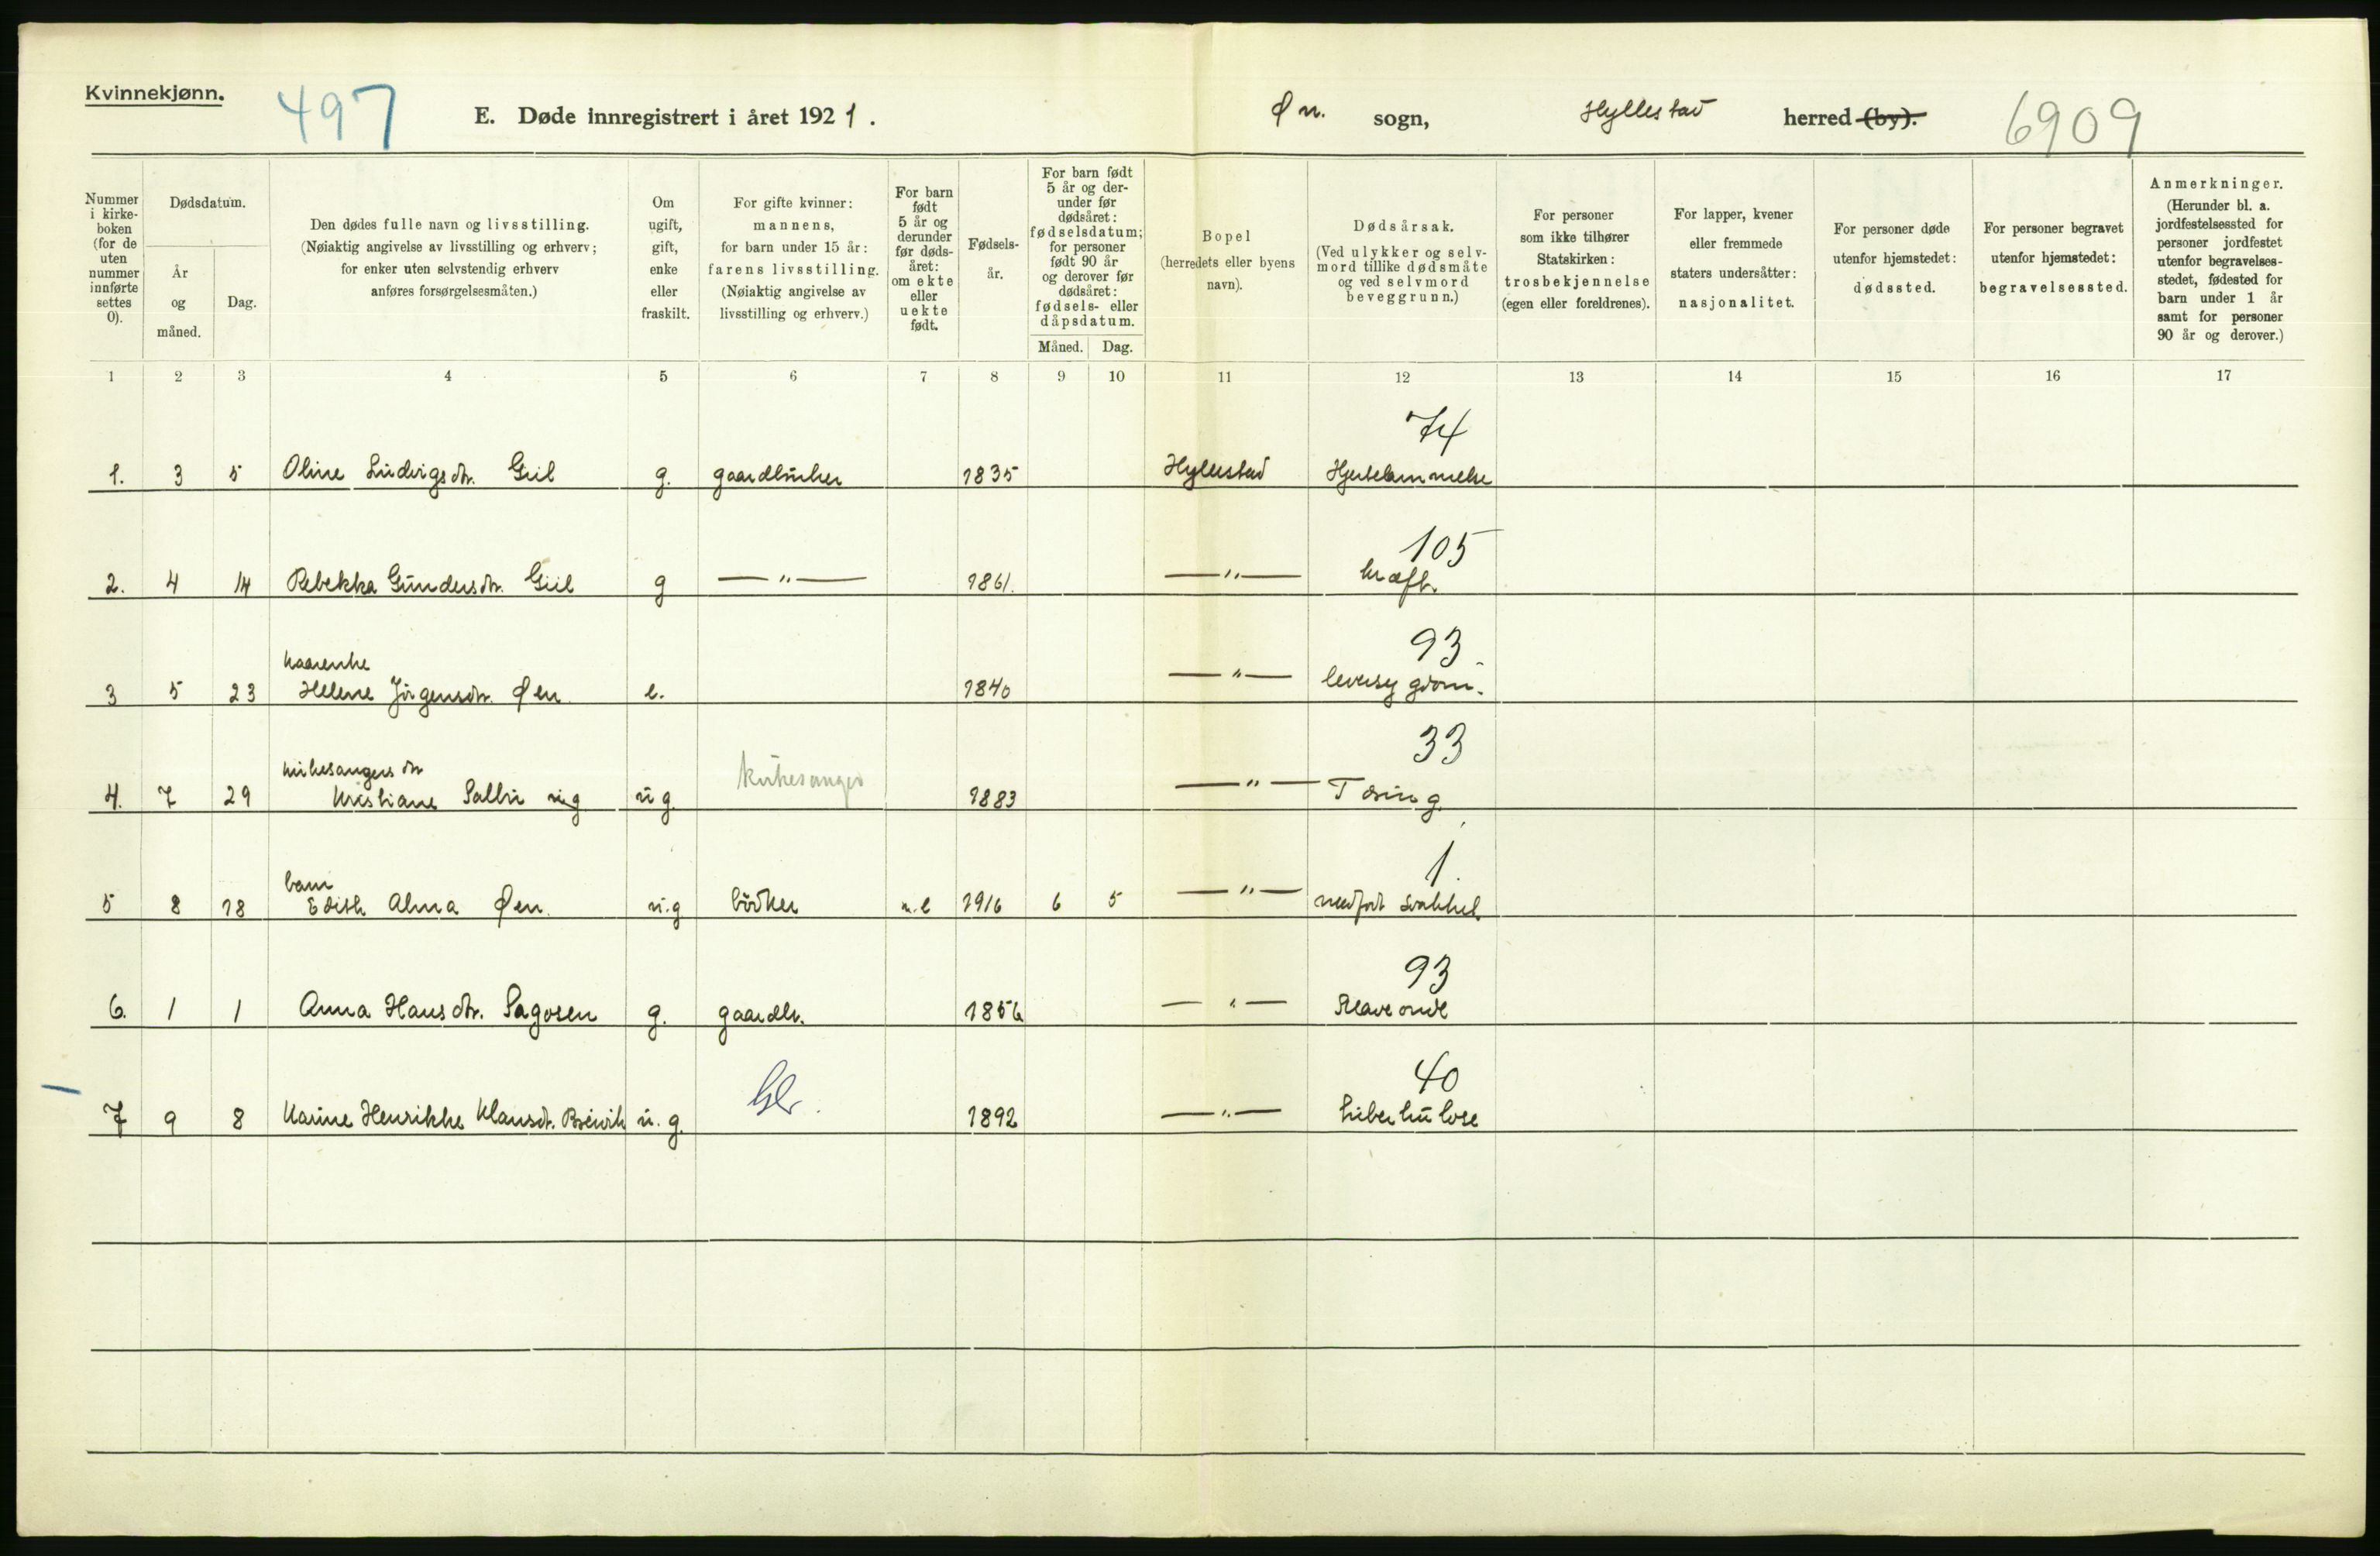 Kvinnekjønn.
497
E. Døde innregistrert i året 1921.
Øn. sogn, Hyllestad herred (by).
6909
Nummer i kirke-boken (for de uten nummer innførte settes 0).
Dødsdatum.
År og måned.
Dag.
Den dødes fulle navn og livsstilling.
(Nøiaktig angivelse av livsstilling og erhverv;
for enker uten selvstendig erhverv
anføres forsørgelsesmåten.)
Om ugift, gift, enke eller fraskilt.
For gifte kvinner:
mannens,
for barn under 15 år:
farens livsstilling.
(Nøiaktig angivelse av
livsstilling og erhverv.)
For barn født 5 år og derunder før døds-året: om ekte eller uekte født.
Fødsels-år.
For barn født 5 år og der-under før dødsåret: fødselsdatum; for personer født 90 år og derover før dødsåret: fødsels- eller dåpsdatum.
Måned. Dag.
Bopel
(herredets eller byens
navn).
Dødsårsak.
(Ved ulykker og selv-
mord tillike dødsmåte
og ved selvmord
beveggrunn.)
For personer
som ikke tilhører
Statskirken:
trosbekjennelse
(egen eller foreldrenes).
For lapper, kvener
eller fremmede
staters undersåtter:
nasjonalitet.
For personer døde
utenfor hjemstedet:
dødssted.
For personer begravet
utenfor hjemstedet:
begravelsessted.
Anmerkninger.
(Herunder bl. a.
jordfestelsessted for
personer jordfestet
utenfor begravelses-
stedet, fødested for
barn under 1 år
samt for personer
90 år og derover.)
1 2 3 4 5 6 7 8 9 10 11 12 13 14 15 16 17
74
1. 3 5 Oline Ludvigsdtr. Giil g. gaardbruker 1835 Hyllestad Hjertelammelse
105
2. 4 14 Rebekka Gundersdtr. Giil g — " — 1861. — " — kræft.
93
kaarenke
3 5 23 Helene Jørgensdtr. Øen e. 1840 — " — leversygdom.
33
kirkesangers dtr kirkesanger
4. 7 29 Kristiane Salbu ug ug. 1883 — " — Tæring
1.
barn
5 8 18 Edith Alma Øen. u.g bödker u.e 1916 6 5 — " — medfødt svakhet
93
6. 1 1 Anna Hansdtr. Sagosen g. gaardbr. 1856 — " — Maveonde
40
Gbr.
7 9 8 Karine Henrikke Klausdt. Breivik u.g. 1892 — " — tuberkulose